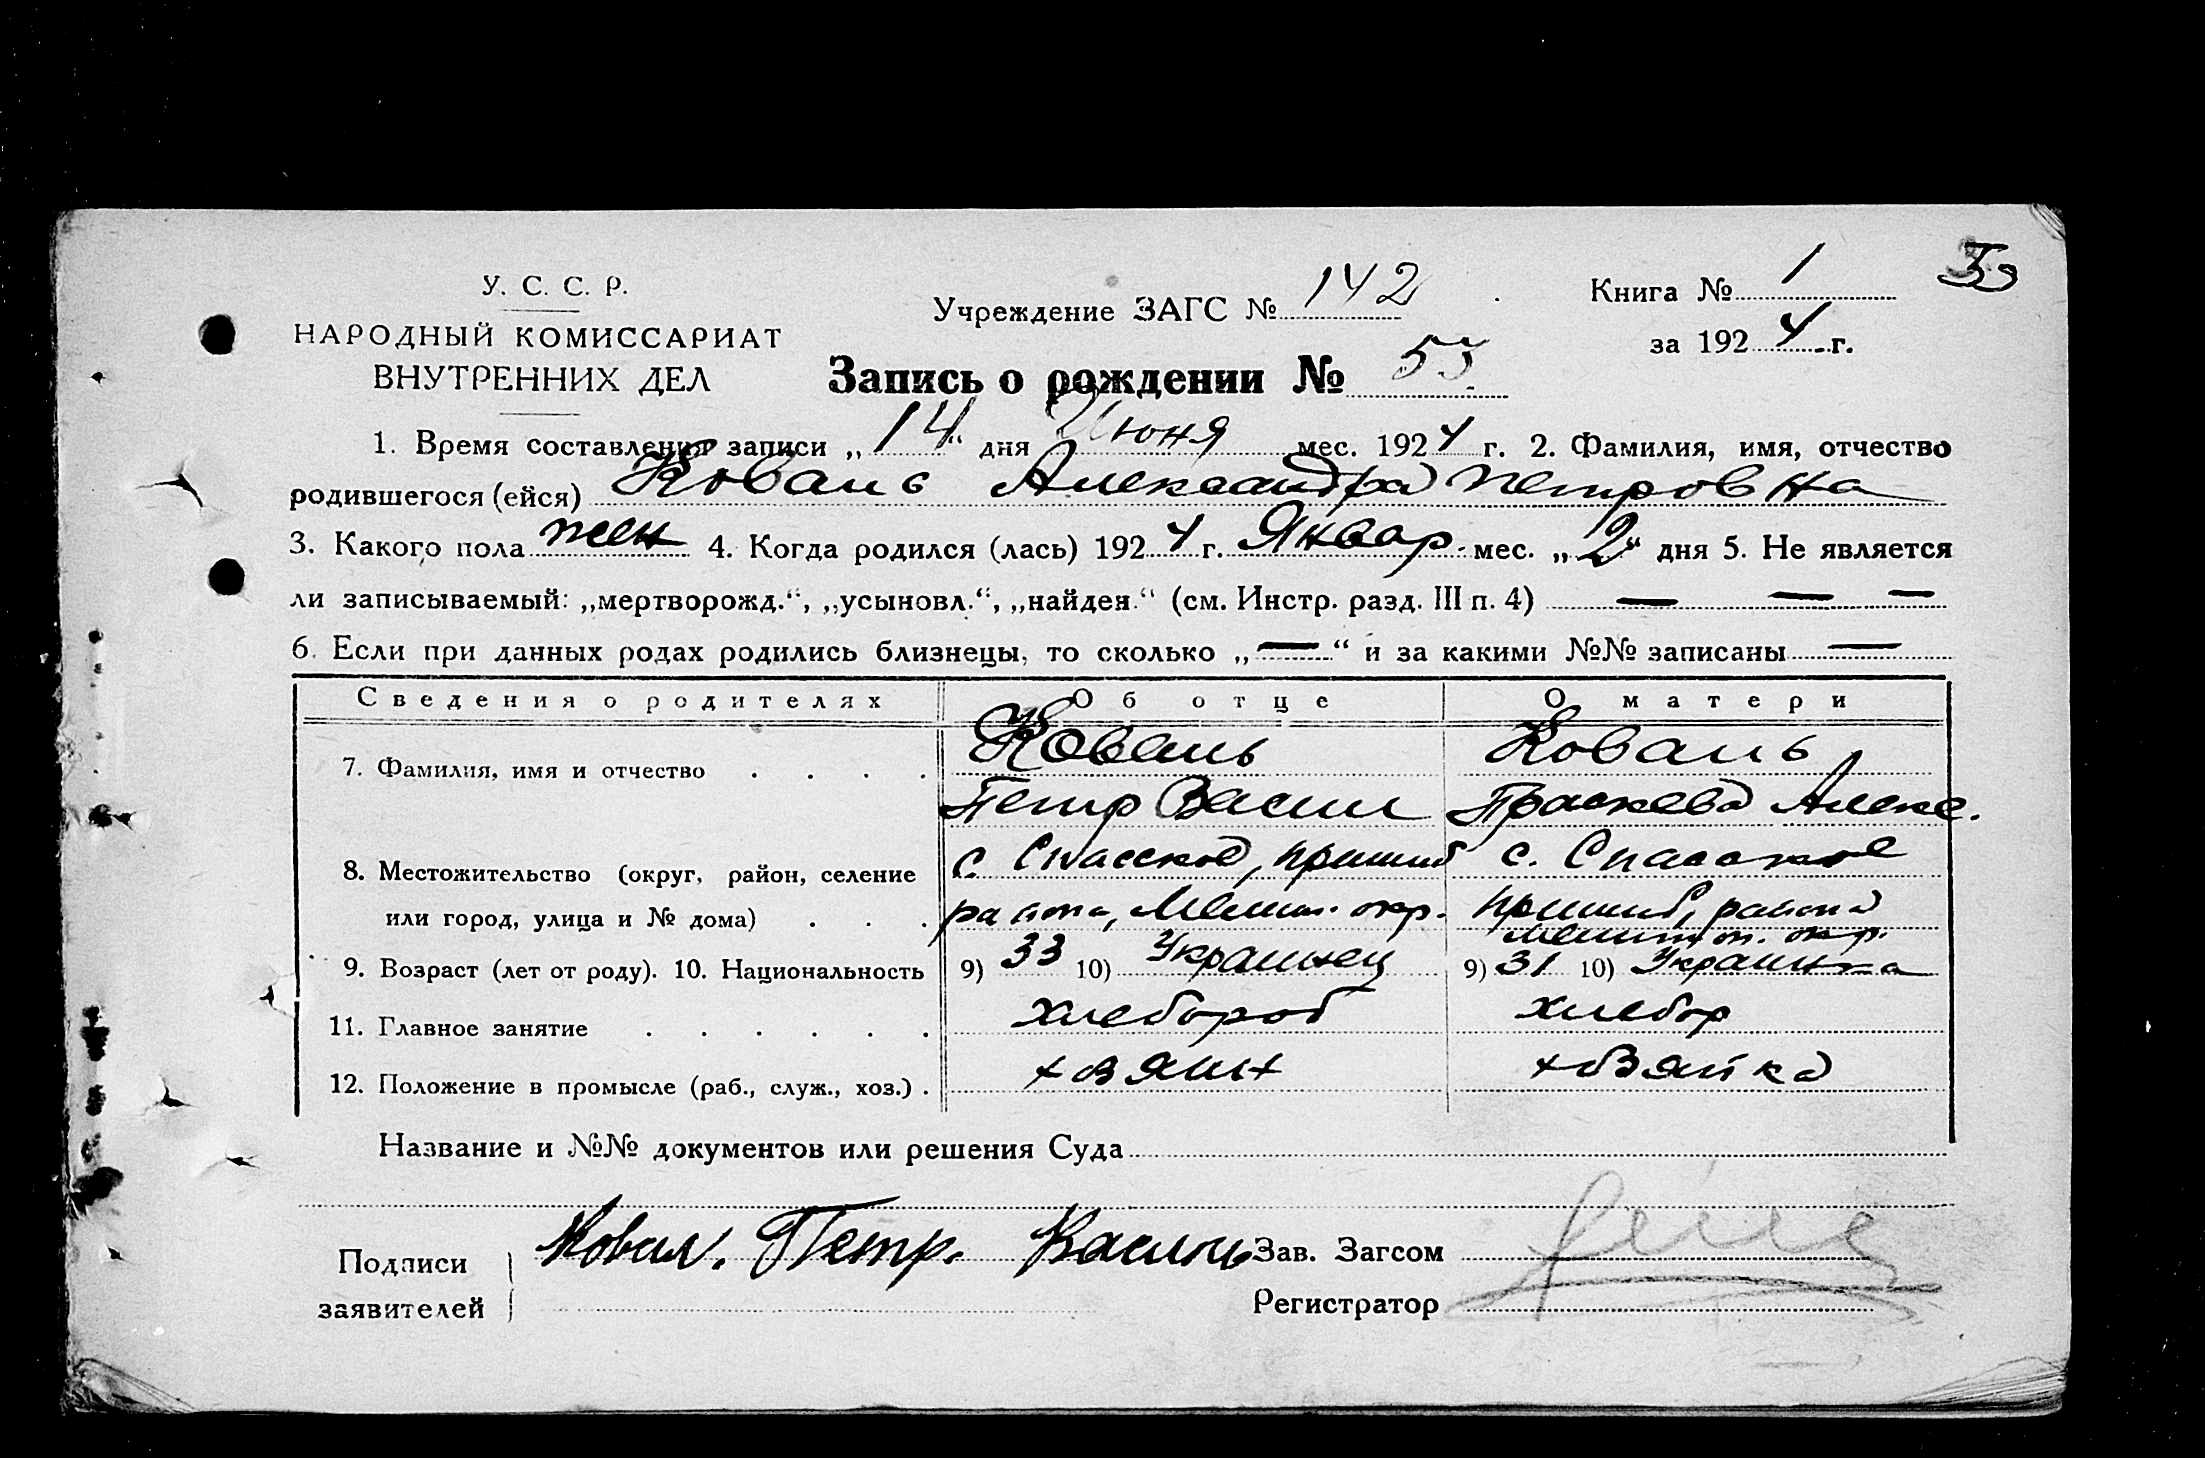 У. С. С. Р.
НАРОДНЫЙ КОМИССАРИАТ
ВНУТРЕННИХ ДЕЛ
Учреждение ЗАГС № 142
Книга № 1
за 1924 г.
Запись о рождении № 53
1. Время составления записи „14“ дня Июня мес. 1924 г. 2. Фамилия, имя, отчество
родившегося (ейся) Коваль Александра Петровна
3. Какого пола жен 4. Когда родился (лась) 1924 г. Январ. мес. „2“ дня 5. Не является
ли записываемый: „мертворожд.“, „усыновл.“, „найден.“ (см. Инстр. разд. III п. 4) — — —
6. Если при данных родах родились близнецы, то сколько „—“ и за какими №№ записаны —
Сведения о родителях Об отце О матери
7. Фамилия, имя и отчество . . . . Коваль Коваль
Петр Васил Праскева Алекс.
8. Местожительство (округ, район, селение с. Спасское, пришиб с. Спасское
или город, улица и № дома) . . . района, Мелит. окр. пришиб, района
Мелитоп. окр.
9. Возраст (лет от роду). 10. Национальность 9) 33 10) Украинец 9) 31 10) Украинка
11. Главное занятие . . . . . . хлебороб хлебор
12. Положение в промысле (раб., служ., хоз.) . хозяин хозяйка
Название и №№ документов или решения Суда
Подписи Ковал. Петр. Василь Зав. Загсом
заявителей Регистратор